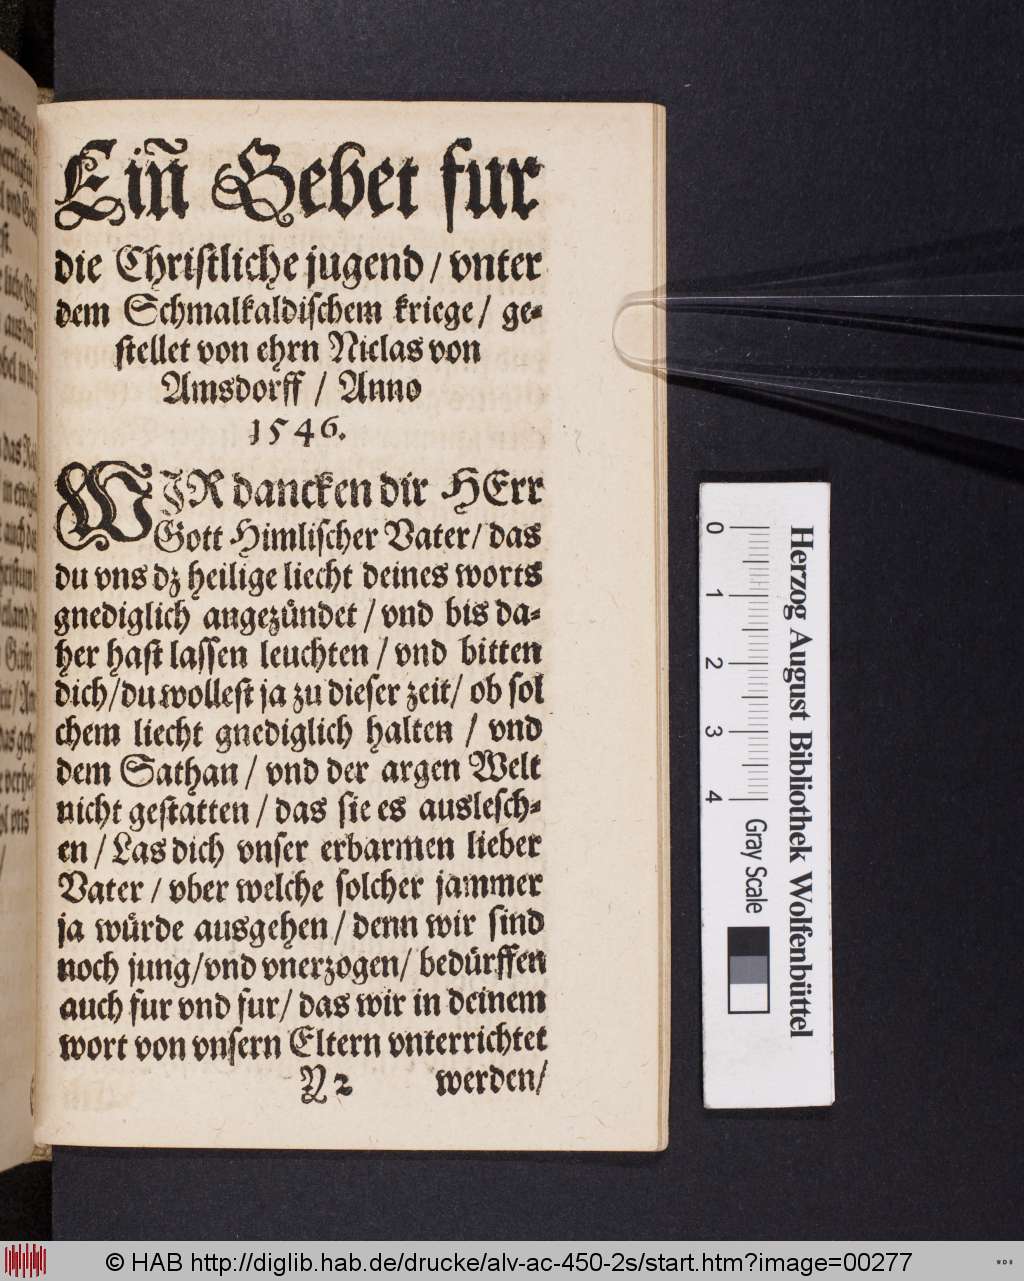 Ein̄ Gebet fur
die Christliche jugend / vnter
dem Schmalkaldischem kriege / ge-
stellet von ehrn Niclas von
Amsdorff / Anno
1546.
WIR dancken dir HErr
Gott Himlischer Vater / das
du vns dz heilige liecht deines worts
gnediglich angezündet / vnd bis da-
her hast lassen leuchten / vnd bitten
dich / du wollest ja zu dieser zeit / ob sol
chem liecht gnediglich halten / vnd
dem Sathan / vnd der argen Welt
nicht gestatten / das sie es auslesch-
en / Las dich vnser erbarmen lieber
Vater / vber welche solcher jammer
ja würde ausgehen / denn wir sind
noch jung / vnd vnerzogen / bedürffen
auch fur vnd fur / das wir in deinem
wort von vnsern Eltern vnterrichtet
N 2 werden /
Herzog August Bibliothek Wolfenbüttel
0 1 2 3 4 Gray Scale
© HAB http://diglib.hab.de/drucke/alv-ac-450-2s/start.htm?image=00277